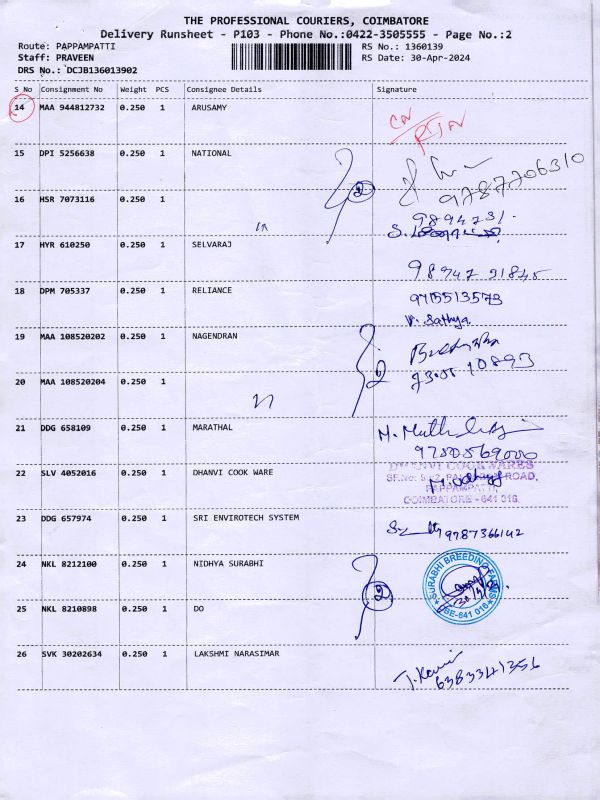 THE PROFESSIONAL COURIERS, COIMBATORE
Delivery Runsheet - P103 - Phone No.:0422-3505555 - Page No.:2
Route: PAPPAMPATTI RS No.: 1360139
Staff: PRAVEEN RS Date: 30-Apr-2024
DRS No.: DCJB136013902
S No Consignment No Weight PCS Consignee Details Signature
14 MAA 944812732 0.250 1 ARUSAMY
15 DPI 5256638 0.250 1 NATIONAL
9787706310
16 HSR 7073116 0.250 1
2
17 HYR 610250 0.250 1 SELVARAJ
98947 21845
18 DPM 705337 0.250 1 RELIANCE 9715513573
V. Sathya
19 MAA 108520202 0.250 1 NAGENDRAN
2
20 MAA 108520204 0.250 1
21 DDG 658109 0.250 1 MARATHAL
DHANVI COOK WARES
22 SLV 4052016 0.250 1 DHANVI COOK WARE
PAPPAMPATTI
COIMBATORE - 641 016.
23 DDG 657974 0.250 1 SRI ENVIROTECH SYSTEM 9787366142
24 NKL 8212100 0.250 1 NIDHYA SURABHI
SURABHI BREEDING FARMS
CBE-641 016
2
25 NKL 8210898 0.250 1 DO
26 SVK 30202634 0.250 1 LAKSHMI NARASIMAR
6383341356